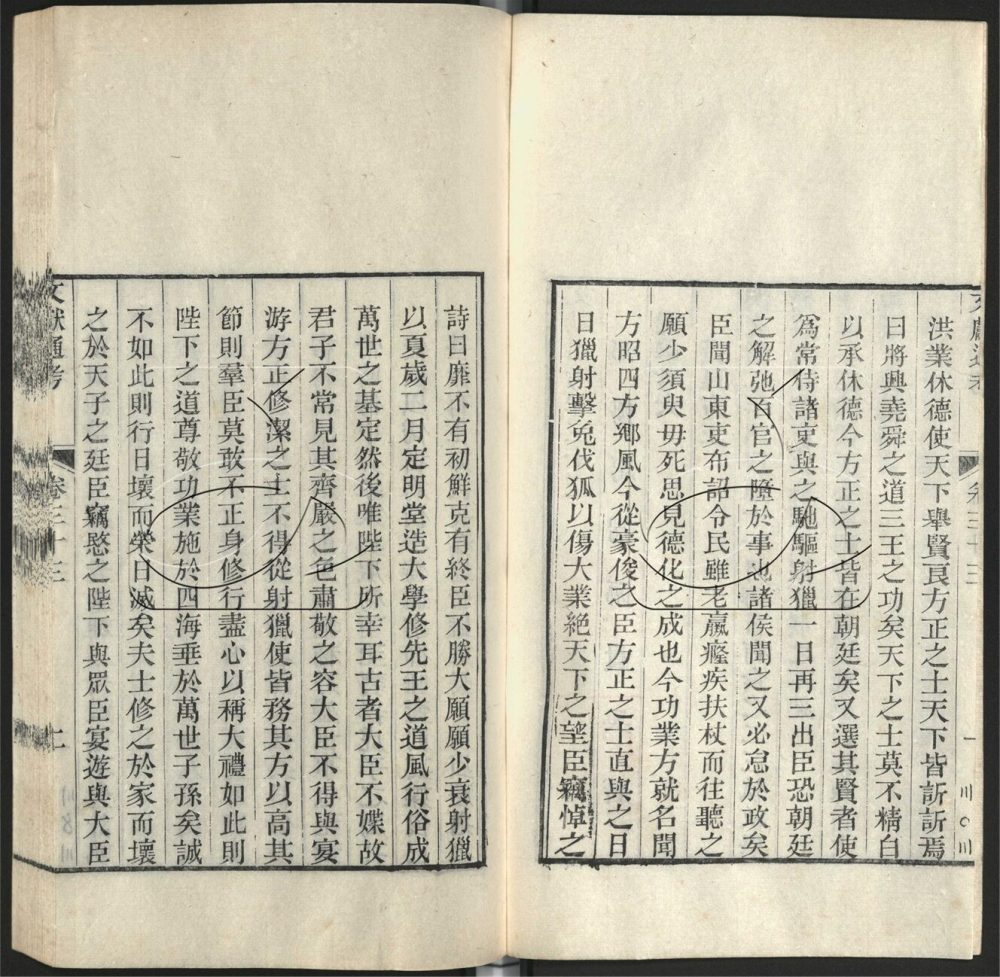 洪業休德使天下舉賢良方正之士天下皆訢訢焉
曰將興堯舜之道三王之功矣天下之士莫不精白
以承休德今方正之士皆在朝廷矣又選其賢者使
爲常侍諸吏與之馳驅射獵一日再三出臣恐朝廷
之解弛百官之墮於事也諸侯聞之又必怠於政矣
臣聞山東吏布詔令民雖老羸癃疾扶杖而往聽之
願少須臾毋死思見德化之成也今功業方就名聞
方昭四方鄉風今從豪俊之臣方正之士直與之日
日獵射擊兔伐狐以傷大業絶天下之望臣竊悼之
詩曰靡不有初鮮克有終臣不勝大願願少衰射獵
以夏歲二月定明堂造大學修先王之道風行俗成
萬世之基定然後唯陛下所幸耳古者大臣不媟故
君子不常見其齊嚴之色肅敬之容大臣不得與宴
游方正修潔之士不得從射獵使皆務其方以高其
節則羣臣莫敢不正身修行盡心以稱大禮如此則
陛下之道尊敬功業施於四海垂於萬世子孫矣誠
不如此則行日壞而榮日滅矣夫士修之於家而壞
之於天子之廷臣竊愍之陛下與眾臣宴遊與大臣
文獻通考 卷三十三 二